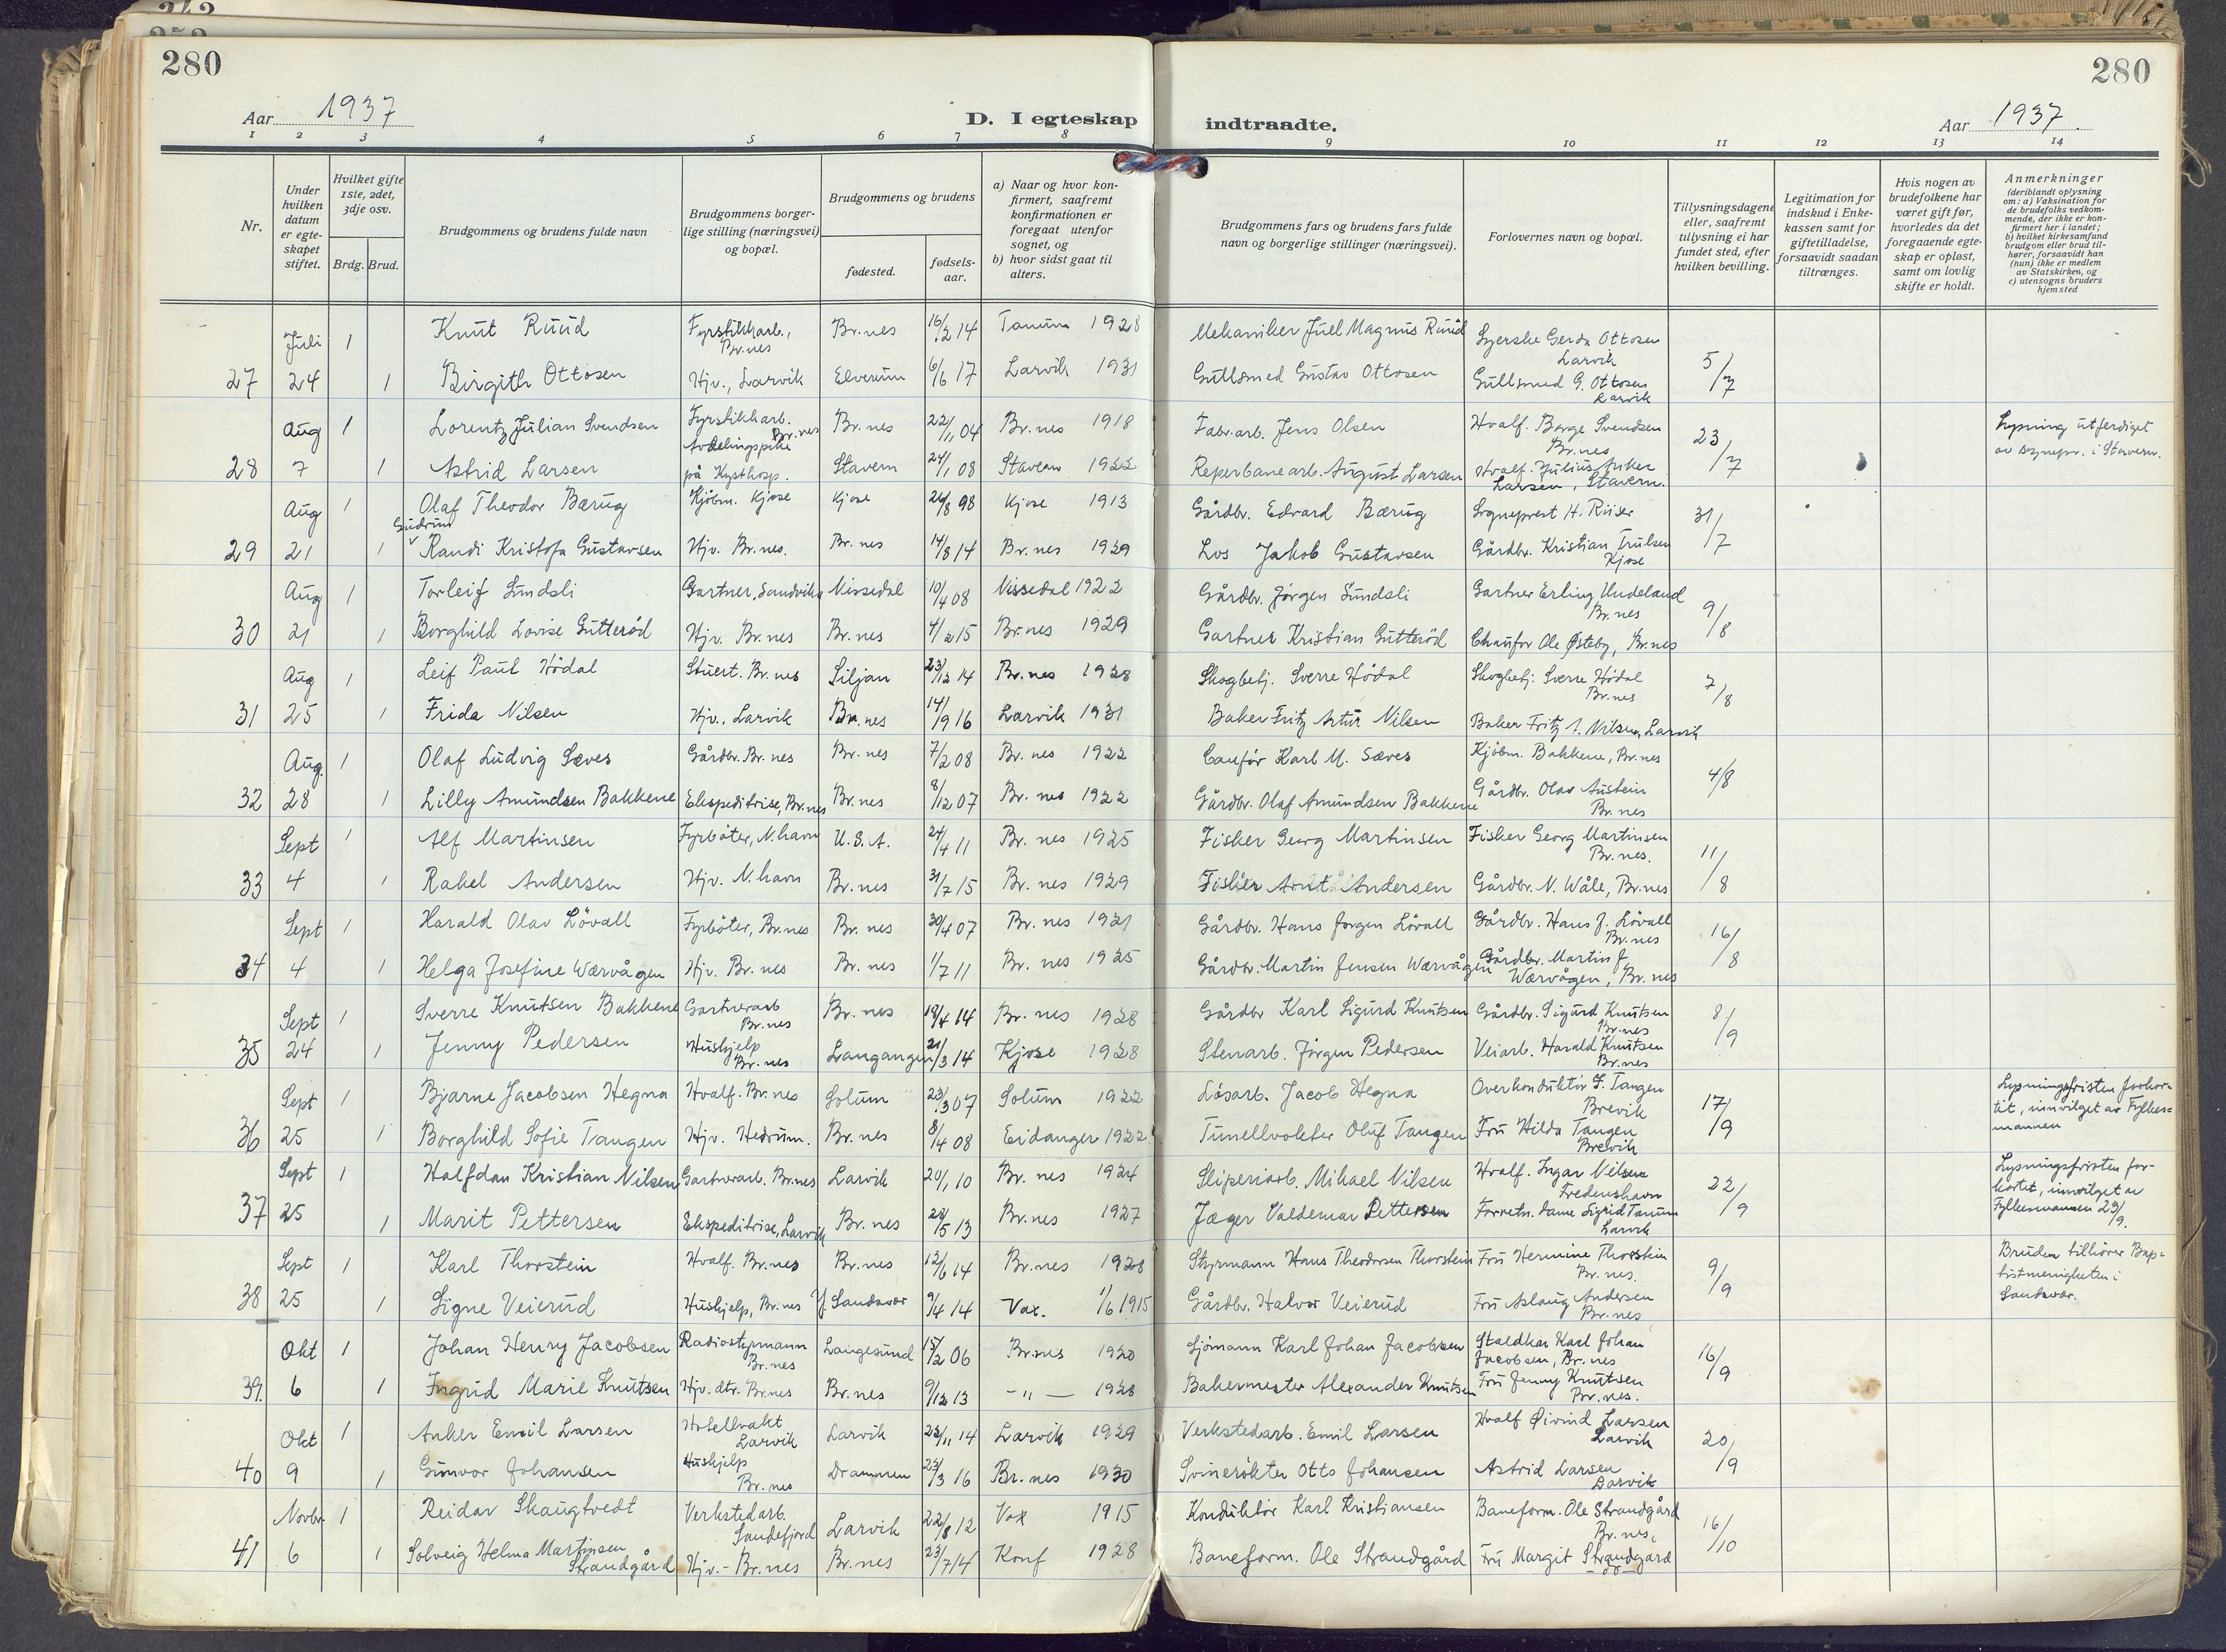 280
280
Aar 1937
D. I egteskap
indtraadte.
Aar 1937.
1 2 3 4 5 6 7 8 9 10 11 12 13 14
Nr.
Under hvilken datum er egteskapet stiftet.
Hvilket gifte 1ste, 2det, 3dje osv.
Brdg. Brud.
Brudgommens og brudens fulde navn
Brudgommens borgerlige stilling (næringsvei) og bopæl.
Brudgommens og brudens
fødested.
fødselsaar.
a) Naar og hvor konfirmert, saafremt konfirmationen er foregaat utenfor sognet, og
b) hvor sidst gaat til alters.
Brudgommens fars og brudens fars fulde navn og borgerlige stillinger (næringsvei).
Forlovernes navn og bopæl.
Tillysningsdagene eller, saafremt tillysning ei har fundet sted, efter hvilken bevilling.
Legitimation for indskud i Enkekassen samt for giftetilladelse, forsaavidt saadan tiltrænges.
Hvis nogen av brudefolkene har været gift før, hvorledes da det foregaaende egteskap er opløst, samt om lovlig skifte er holdt.
Anmerkninger
(deriblandt oplysning om: a) Vaksination for de brudefolks vedkommende, der ikke er konfirmert her i landet; b) hvilket kirkesamfund brudgom eller brud tilhører, forsaavidt han (hun) ikke er medlem av Statskirken, og c) utensogns bruders hjemsted
Juli 1 Knut Ruud Fyrstikkarb., Br.nes Br.nes 16/2 14 Tanum 1928 Mekaniker Juel Magnus Ruud Syerske Gerda Ottosen Larvik
27 24 1 Birgith Ottosen Hjv., Larvik Elverum 6/6 17 Larvik 1931 Gullsmed Gustav Ottosen Gullsmed G. Ottosen Larvik 5/7
Aug 1 Lorentz Julian Svendsen Fyrstikkarb. Br.nes Br.nes 22/11 04 Br.nes 1918 Fabr.arb. Jens Olsen Hvalf. Borge Svendsen Br.nes 23/7 Lysning utferdiget av sognepr. i Stavern.
28 7 1 Astrid Larsen Avdelingspike på Kysthosp. Stavern 24/1 08 Stavern 1922 Reperbanearb. August Larsen Hvalf. Julius Anker Larsen, Stavern.
Aug 1 Olaf Theodor Bærug Kjøbm. Kjose Kjose 26/8 98 Kjose 1913 Gårdbr. Edvard Bærug Sogneprest H. Riiser 31/7
29 21 1 Gudrun Randi Kristofa Gustavsen Hjv. Br.nes. Br.nes 14/8 14 Br.nes 1929 Los Jakob Gustavsen Gårdbr. Kristian Trulsen Kjose
Aug 1 Torleif Sundsli Gartner, Sandvika Nissedal 10/4 08 Nissedal 1922 Gårdbr. Jørgen Sundsli Gartner Erling Undeland Br.nes 9/8
30 21 1 Borghild Lovise Gutterød Hjv. Br.nes Br.nes 4/2 15 Br.nes 1929 Gartner Kristian Gutterød Chaufør Ole Østeby, Br.nes
Aug 1 Leif Paul Hødal Stuert. Br.nes Siljan 23/12 14 Br.nes 1928 Skogbetj. Sverre Hødal Skogbetj. Sverre Hødal Br.nes 7/8
31 25 1 Frida Nilsen Hjv., Larvik Br.nes 14/9 16 Larvik 1931 Baker Fritz Artur Nilsen Baker Fritz A. Nilsen, Larvik
Aug. 1 Olaf Ludvig Sæves Gårdbr. Br.nes Br.nes 7/2 08 Br.nes 1922 Caufør Karl M. Sæves Kjøbm. Bakkene, Br.nes 4/8
32 28 1 Lilly Amundsen Bakkene Ekspeditrise, Br.nes Br.nes 8/12 07 Br.nes 1922 Gårdbr. Olaf Amundsen Bakkene Gårdbr. Olav Austein Br.nes
Sept 1 Alf Martinsen Fyrbøter, N.havn U.S.A. 24/4 11 Br.nes 1925 Fisker Georg Martinsen Fisker Georg Martinsen Br.nes. 11/8
33 4 1 Rakel Andersen Hjv. N.havn Br.nes 31/7 15 Br.nes 1929 Fisker Arnt Andersen Gårdbr. N. Wåle, Br.nes
Sept 1 Harald Olav Løvall Fyrbøter, Br.nes Br.nes 30/4 07 Br.nes 1921 Gårdbr. Hans Jorgen Løvall Gårdbr. Hans J. Løvall Br.nes 16/8
34 4 1 Helga Josefine Wærvågen Hjv. Br.nes Br.nes 1/7 11 Br.nes 1925 Gårdbr. Martin Jensen Wærvågen Gårdbr. Martin J. Wærvågen, Br.nes
Sept 1 Sverre Knutsen Bakkene Gartnerarb Br.nes Br.nes 18/4 14 Br.nes 1928 Gårdbr Karl Sigurd Knutsen Gårdbr. Sigurd Knutsen Br.nes 8/9
35 24 1 Jenny Pedersen Hushjelp Br.nes Langangen 21/3 14 Kjose 1928 Stenarb. Jørgen Pedersen Veiarb. Harald Knutsen Br.nes
Sept 1 Bjarne Jacobsen Hegna Hvalf. Br.nes Solum 23/3 07 Solum 1922 Løsarb. Jacob Hegna Overkonduktør F. Tangen Brevik 17/9 Lysningsfristen forkortet, innvilget av Fylkesmannen
36 25 1 Borghild Sofie Trangen Hjv. Hedrum. Br.nes 8/4 08 Eidanger 1922. Tunellvokter Oluf Tangen Fru Hilda Tangen Brevik
Sept 1 Halfdan Kristian Nilsen Gartnerarb. Br.nes Larvik 20/1 10 Br.nes 1924 Sliperiarb. Mikael Nilsen Hvalf. Ingar Nilsen Fredrikshavn 22/9 Lysningsfristen forkortet, innvilget av Fylkesmannen 23/9.
37 25 1 Marit Pettersen Ekspeditrise, Larvik Br.nes 28/5 13 Br.nes 1927 Jæger Valdemar Pettersen Forretn.dame Sigrid Tanum Larvik
Sept 1 Karl Thorstein Hvalf. Br.nes Br.nes 12/6 14 Br.nes 1928 Styrmann Hans Theodorsen Thorstein Fru Hermine Thorstein Br.nes. 9/9 Bruden tilhører Baptistmenigheten i Sandsvær.
38 25 1 Signe Veierud Hushjelp, Br.nes Y. Sandsvær 9/4 14 Vax. 1/6 1915 Gårdbr. Halvor Veierud Fru Aslaug Andersen Br.nes
Okt 1 Johan Henry Jacobsen Radiostyrmann Br.nes Langesund 15/2 06 Br.nes 1920 Sjømann Karl Johan Jacobsen Staldkar Karl Johan Jacobsen, Br.nes 16/9
39. 6 1 Ingrid Marie Knutsen Hjv. dtr. Br.nes Br.nes 9/12 13 - " - 1928 Bakermester Alexander Knutsen Fru Jenny Knutsen Br.nes.
Okt 1 Anker Emil Larsen Hotellvakt Larvik Larvik 23/11 14 Larvik 1929 Verkstedarb. Emil Larsen Hvalf Øivind Larsen Larvik 20/9
40 9 1 Gunvor Johansen Hushjelp Br.nes Drammen 23/3 16 Br.nes 1930 Svinerøkter Otto Johansen Astrid Larsen Larvik
Novbr. 1 Reidar Skaugtvedt Verkstedarb. Sandefjord Larvik 22/8 12 Vax 1915 Konduktør Karl Kristiansen Baneform. Ole Strandgård Br.nes, 16/10
41 6 1 Solveig Helma Martinsen Strandgård Hjv. - Br.nes Br.nes 23/7 14 Konf 1928 Baneform. Ole Strandgård Fru Margit Strandgård - do -